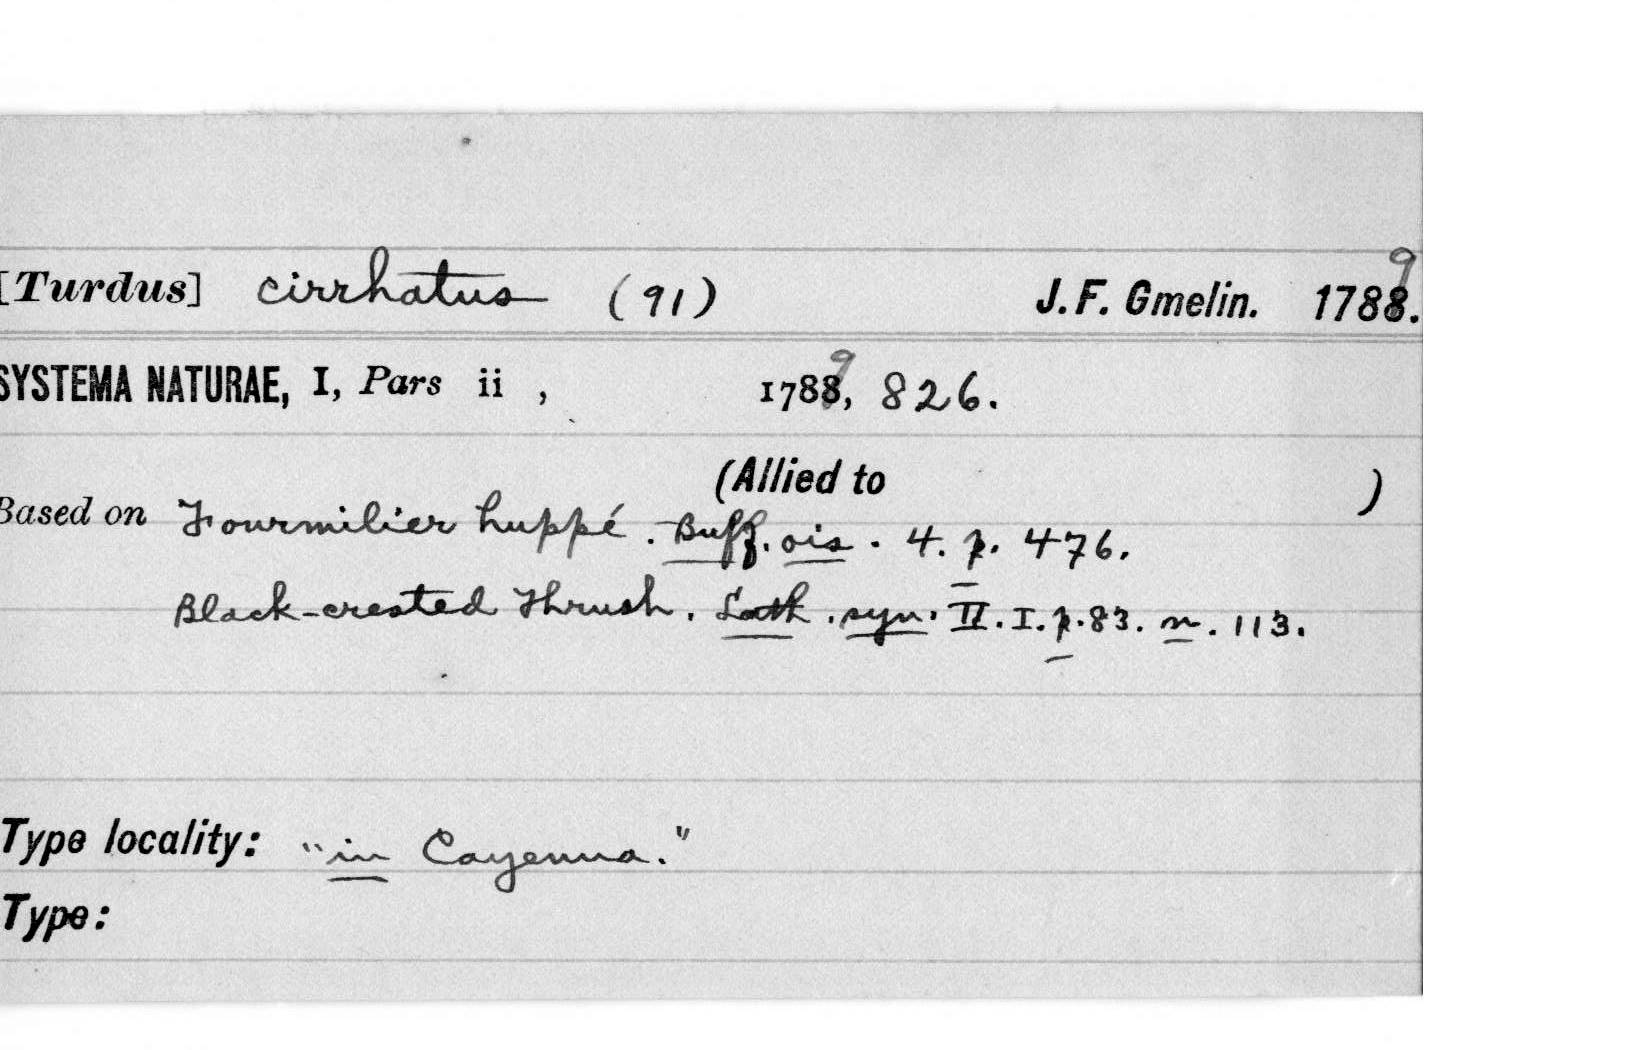 [Turdus] cirrhatus (91) J. F. Gmelin. 1789.
SYSTEMA NATURAE, I, Pars ii , 1789, 826.
(Allied to )
Based on Fourmilier huppé. Buff. ois. 4. p. 476.
Black-crested Thrush. Lath. syn. II. I. p. 83. n. 113.
Type locality: "in Cayenna."
Type: